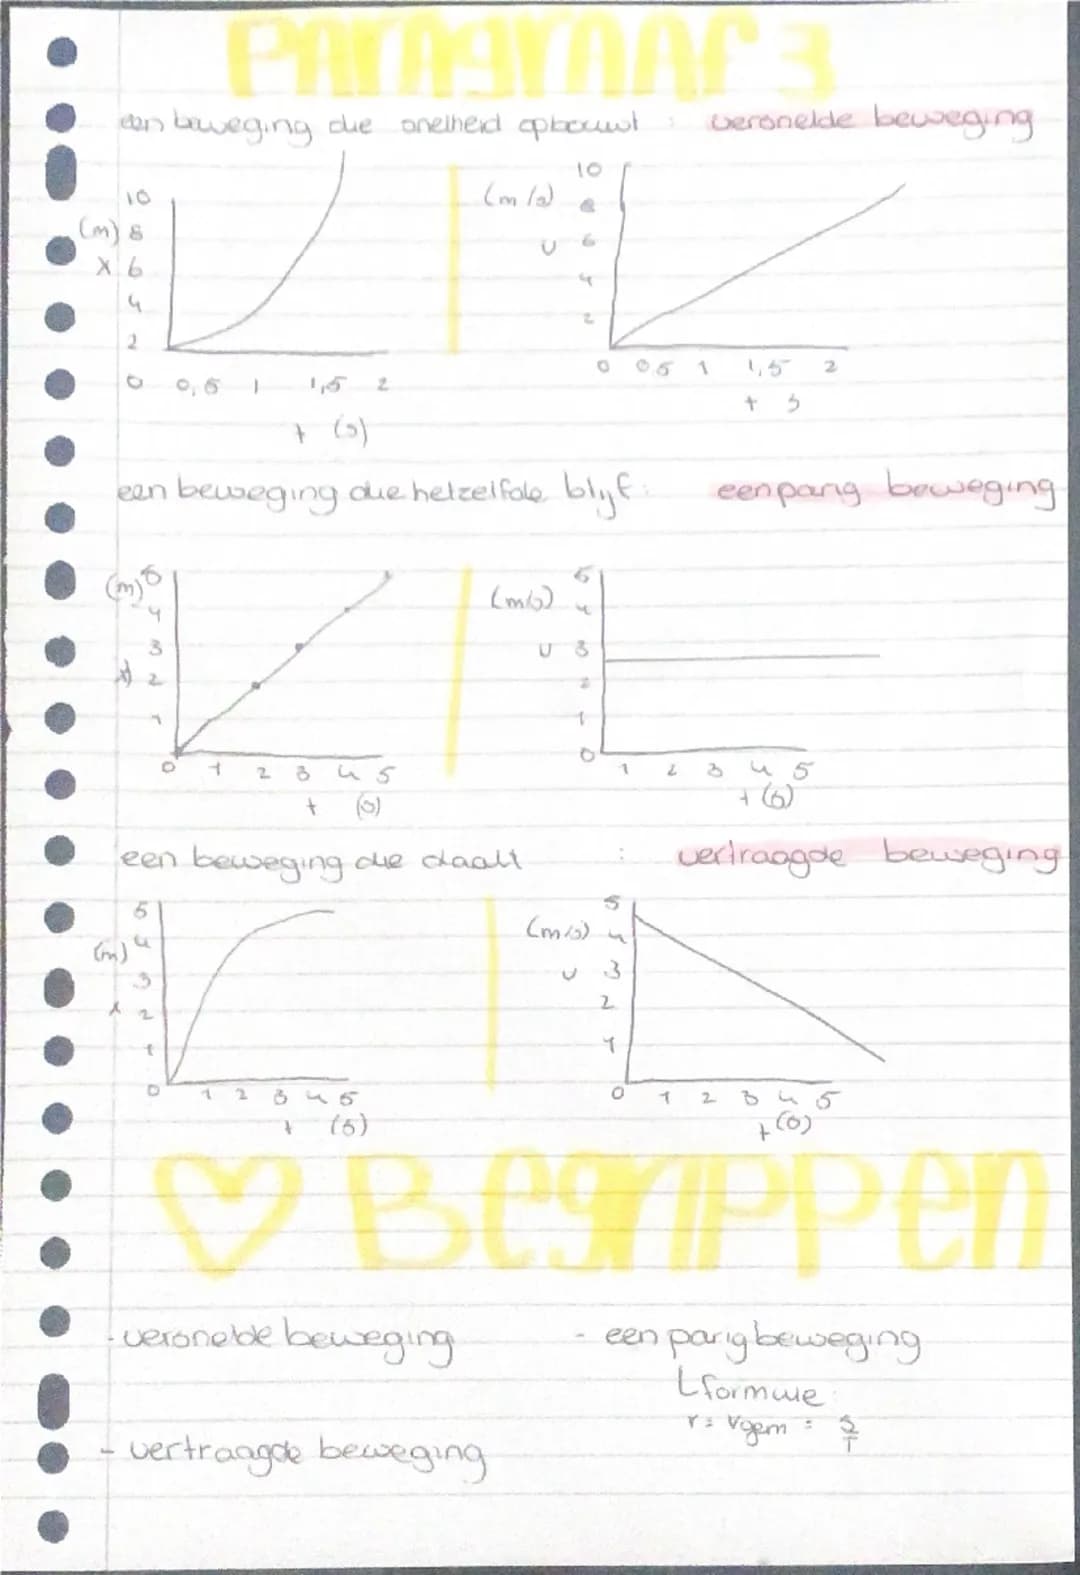 PARAGRAAF 3
een beweging die snelheid opbouwt : versnelde beweging
10
(m) 8
x 6
4
2
0 0,5 1 1,5 2
t (s)
10
(m/s) 8
v 6
4
2
0 0,5 1 1,5 2
t s
een beweging die hetzelfde blijf : eenparig beweging
(m) 5
4
3
x 2
1
0 1 2 3 4 5
t (s)
5
(m/s) 4
v 3
2
1
0
1 2 3 4 5
t (s)
een beweging die daalt : vertraagde beweging
5
(m) 4
3
x 2
1
0 1 2 3 4 5
t (s)
5
(m/s) 4
v 3
2
1
0 1 2 3 4 5
t (s)
♡ Begrippen
- versnelde beweging
- een parig beweging
formule:
v = vgem = s/t
- vertraagde beweging